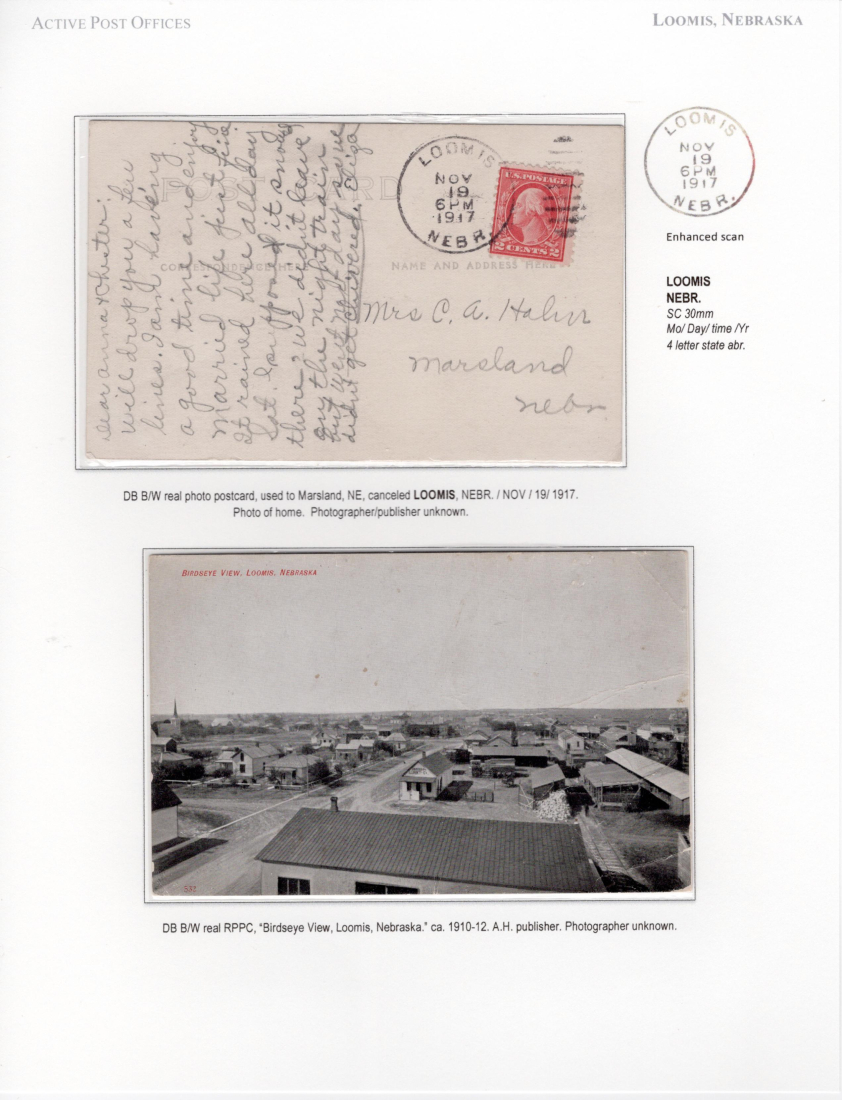 ACTIVE POST OFFICES
LOOMIS, NEBRASKA
Dear Anna & Chester:
will drop you a few
lines. I am having
a good time and enjoy
married life first
It rained here all day
Sat I suppose it snowed
there, we didn't leave
on the night train
but went
didn't get
POST CARD
CORRESPONDENCE HERE
NAME AND ADDRESS HERE
LOOMIS
NOV
19
6 PM
1917
NEBR.
U.S. POSTAGE
2 CENTS 2
Mrs C. A.
Marsland
Nebr
LOOMIS
NOV
19
6 PM
1917
NEBR.
Enhanced scan
LOOMIS
NEBR.
SC 30mm
Mo/ Day/ time /Yr
4 letter state abr.
DB B/W real photo postcard, used to Marsland, NE, canceled LOOMIS, NEBR. / NOV / 19/ 1917.
Photo of home. Photographer/publisher unknown.
BIRDSEYE VIEW, LOOMIS, NEBRASKA
DB B/W real RPPC, “Birdseye View, Loomis, Nebraska.” ca. 1910-12. A.H. publisher. Photographer unknown.